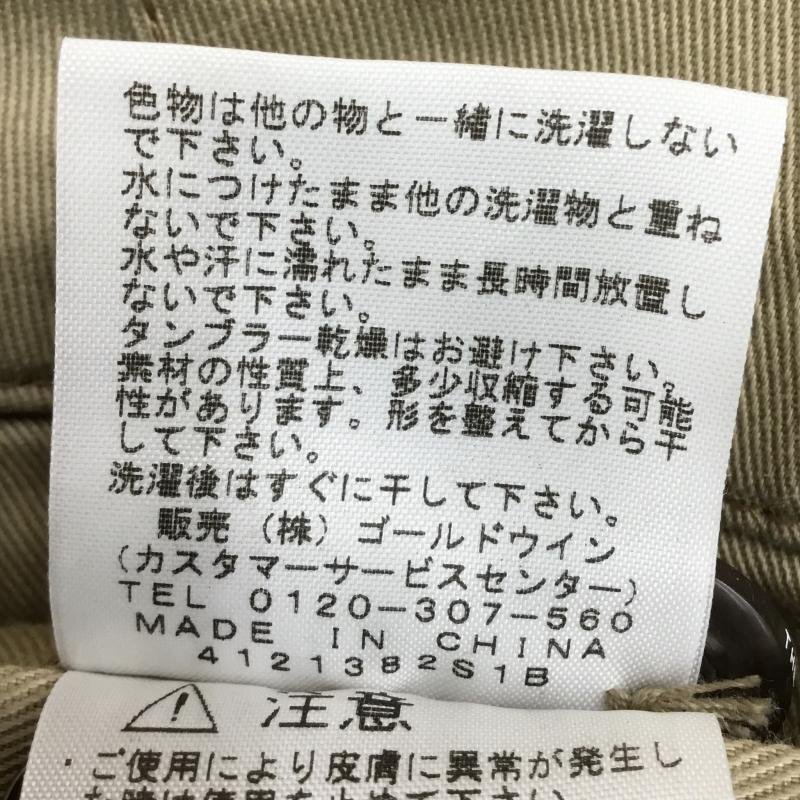 色物は他の物と一緒に洗濯しない
で下さい。
水につけたまま他の洗濯物と重ね
ないで下さい。
水や汗に濡れたまま長時間放置し
ないで下さい。
タンブラー乾燥はお避け下さい。
素材の性質上、多少収縮する可能
性があります。形を整えてから干
して下さい。
洗濯後はすぐに干して下さい。
販売（株）ゴールドウイン
(カスタマーサービスセンター)
TEL 0120-307-560
MADE IN CHINA
4121382S1B
注意
・ご使用により皮膚に異常が発生し
た時は使用を止めて下さい